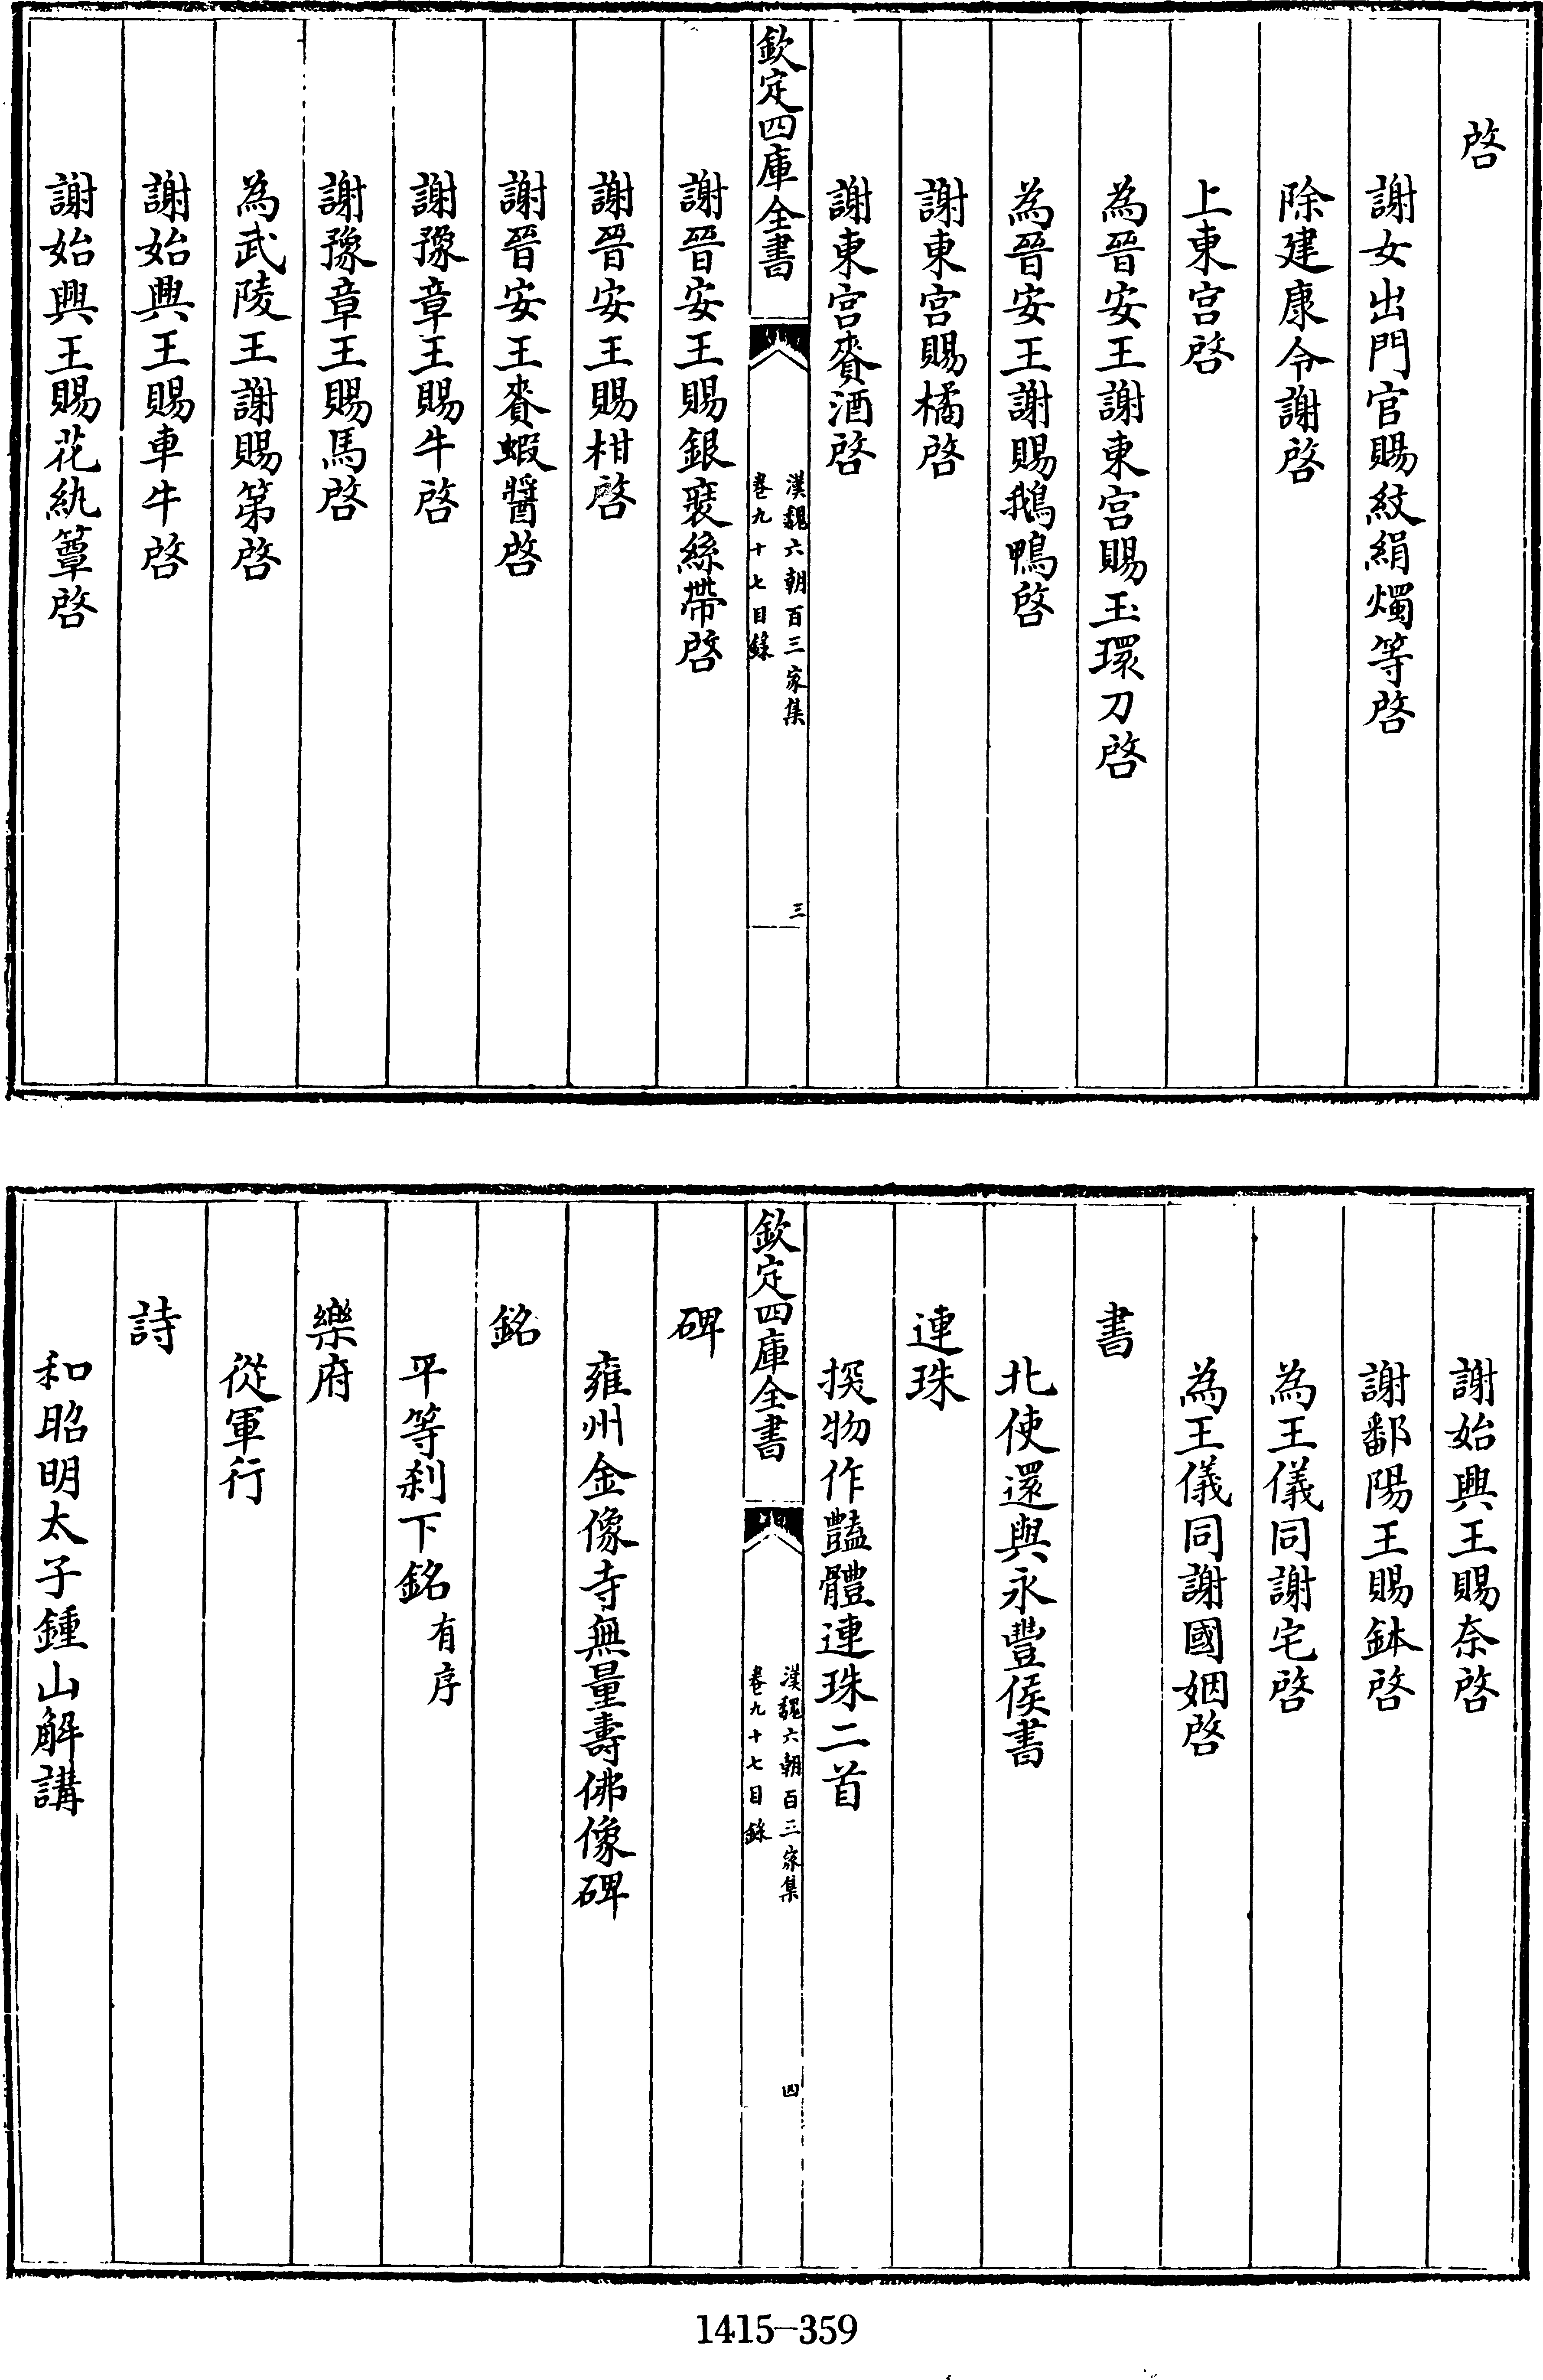 啓
謝女出門官賜紋絹燭等啓
除建康令謝啓
上東宫啓
為晉安王謝東宫賜玉環刀啓
為晉安王謝賜鵝鴨啓
謝東宫賜橘啓
謝東宫賚酒啓
欽定四庫全書
漢魏六朝百三家集
卷九十七目錄
三
謝晉安王賜銀裝絲帶啓
謝晉安王賜柑啓
謝晉安王賚蝦醬啓
謝豫章王賜牛啓
謝豫章王賜馬啓
為武陵王謝賜第啓
謝始興王賜車牛啓
謝始興王賜花紈簟啓
謝始興王賜奈啓
謝鄱陽王賜鉢啓
為王儀同謝宅啓
為王儀同謝國姻啓
書
北使還與永豐侯書
連珠
探物作豔體連珠二首
欽定四庫全書
漢魏六朝百三家集
卷九十七目錄
四
碑
雍州金像寺無量壽佛像碑
銘
平等刹下銘有序
樂府
從軍行
詩
和昭明太子鍾山解講
1415-359